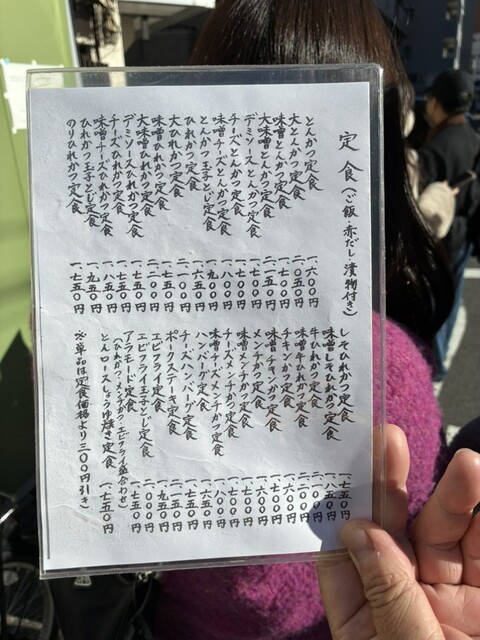 定食(ご飯・赤だし・漬物付き)
とんかつ定食 一、六〇〇円
大とんかつ定食 二、〇五〇円
味噌とんかつ定食 一、七〇〇円
大味噌とんかつ定食 二、一五〇円
デミソースとんかつ定食 一、七〇〇円
チーズとんかつ定食 一、七〇〇円
味噌チーズとんかつ定食 一、八〇〇円
とんかつ玉子とじ定食 一、九〇〇円
ひれかつ定食 一、六五〇円
大ひれかつ定食 二、一〇〇円
味噌ひれかつ定食 一、七五〇円
大味噌ひれかつ定食 二、二〇〇円
デミソースひれかつ定食 一、七五〇円
チーズひれかつ定食 一、七五〇円
味噌チーズひれかつ定食 一、八五〇円
ひれかつ玉子とじ定食 一、九五〇円
のりひれかつ定食 一、七五〇円
しそひれかつ定食 一、七五〇円
味噌しそひれかつ定食 一、八五〇円
牛ひれかつ定食 二、一〇〇円
味噌牛ひれかつ定食 二、二〇〇円
チキンかつ定食 一、六〇〇円
味噌チキンかつ定食 一、七〇〇円
メンチかつ定食 一、六〇〇円
味噌メンチかつ定食 一、七〇〇円
チーズメンチかつ定食 一、七〇〇円
味噌チーズメンチかつ定食 一、八〇〇円
ハンバーグ定食 一、六五〇円
チーズハンバーグ定食 一、七五〇円
ポークステーキ定食 二、一五〇円
エビフライ定食 一、九五〇円
エビフライ玉子とじ定食 二、〇〇〇円
アラモード定食 一、七五〇円
(ひれかつ・メンチかつ・エビフライ盛合わせ)
とんロースしょうゆ焼き定食 一、七五〇円
※単品は定食価格より二〇〇円引き